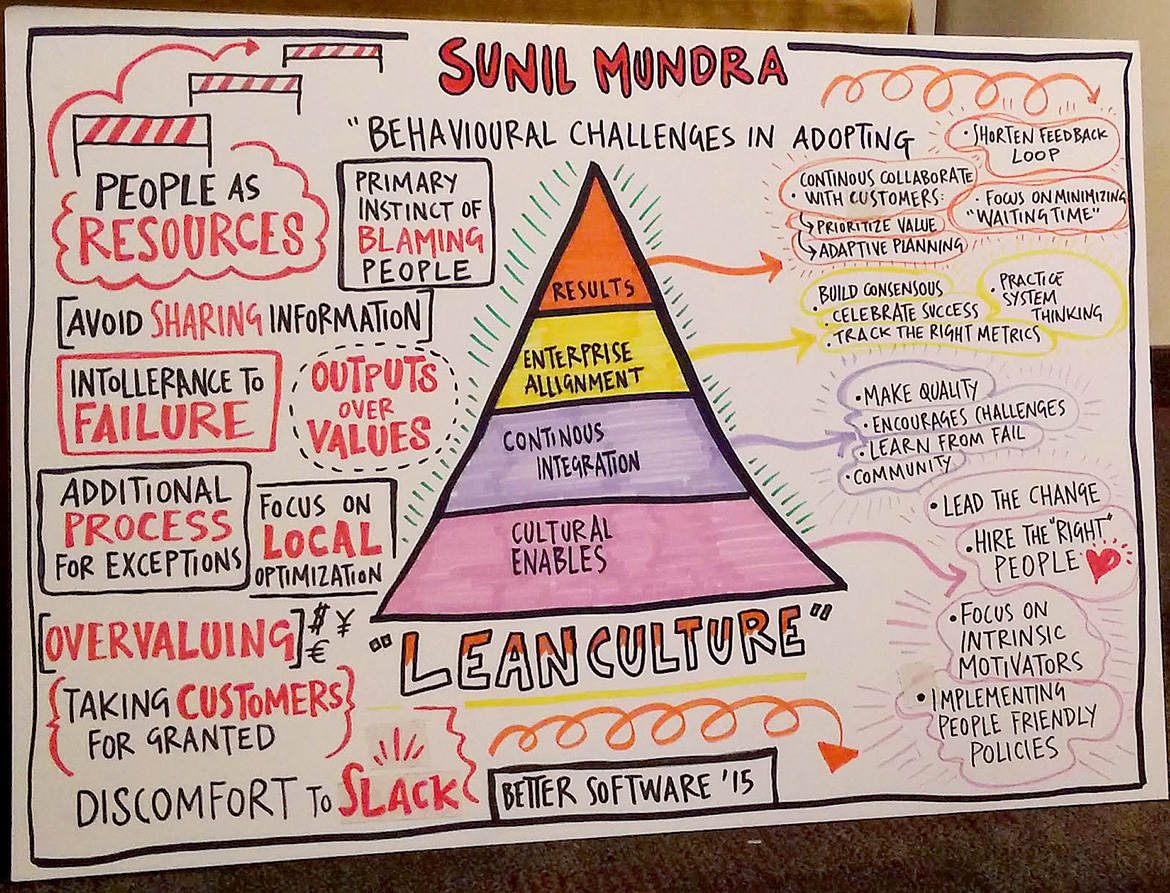 SUNIL MUNDRA
"BEHAVIOURAL CHALLENGES IN ADOPTING
PEOPLE AS
RESOURCES
PRIMARY
INSTINCT OF
BLAMING
PEOPLE
[AVOID SHARING INFORMATION]
INTOLLERANCE TO
FAILURE
OUTPUTS
OVER
VALUES
ADDITIONAL
PROCESS
FOR EXCEPTIONS
FOCUS ON
LOCAL
OPTIMIZATION
[OVERVALUING] $ ¥
€
{TAKING CUSTOMERS}
FOR GRANTED
DISCOMFORT TO SLACK
RESULTS
ENTERPRISE
ALLIGNMENT
CONTINOUS
INTEGRATION
CULTURAL
ENABLES
"LEAN CULTURE"
BETTER SOFTWARE '15
• SHORTEN FEEDBACK
LOOP
CONTINOUS COLLABORATE
• WITH CUSTOMERS:
↳ PRIORITIZE VALUE
↳ ADAPTIVE PLANNING
• FOCUS ON MINIMIZING
"WAITING TIME"
BUILD CONSENSOUS
• CELEBRATE SUCCESS
• TRACK THE RIGHT METRICS
• PRACTICE
SYSTEM
THINKING
• MAKE QUALITY
• ENCOURAGES CHALLENGES
• LEARN FROM FAIL
• COMMUNITY
• LEAD THE CHANGE
• HIRE THE "RIGHT"
PEOPLE
• FOCUS ON
INTRINSIC
MOTIVATORS
• IMPLEMENTING
PEOPLE FRIENDLY
POLICIES